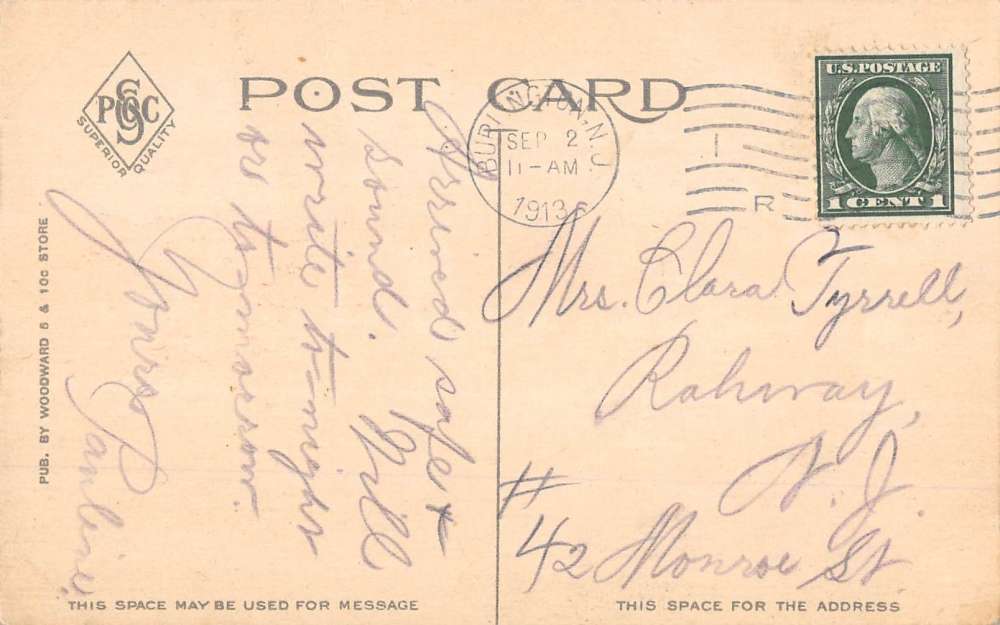 POST CARD
PSCC
SUPERIOR QUALITY
BURLINGTON, N.J.
SEP 2
11-AM
1913
R
U.S. POSTAGE
1 CENT 1
PUB. BY WOODWARD 5 & 10c STORE
Arrived safe +
sound. Will
write to-night
or to-morrow.
Yours
Pauline
Mrs. Clara Tyrrell,
Rahway,
N. J.
# 42 Monroe St
THIS SPACE MAY BE USED FOR MESSAGE
THIS SPACE FOR THE ADDRESS